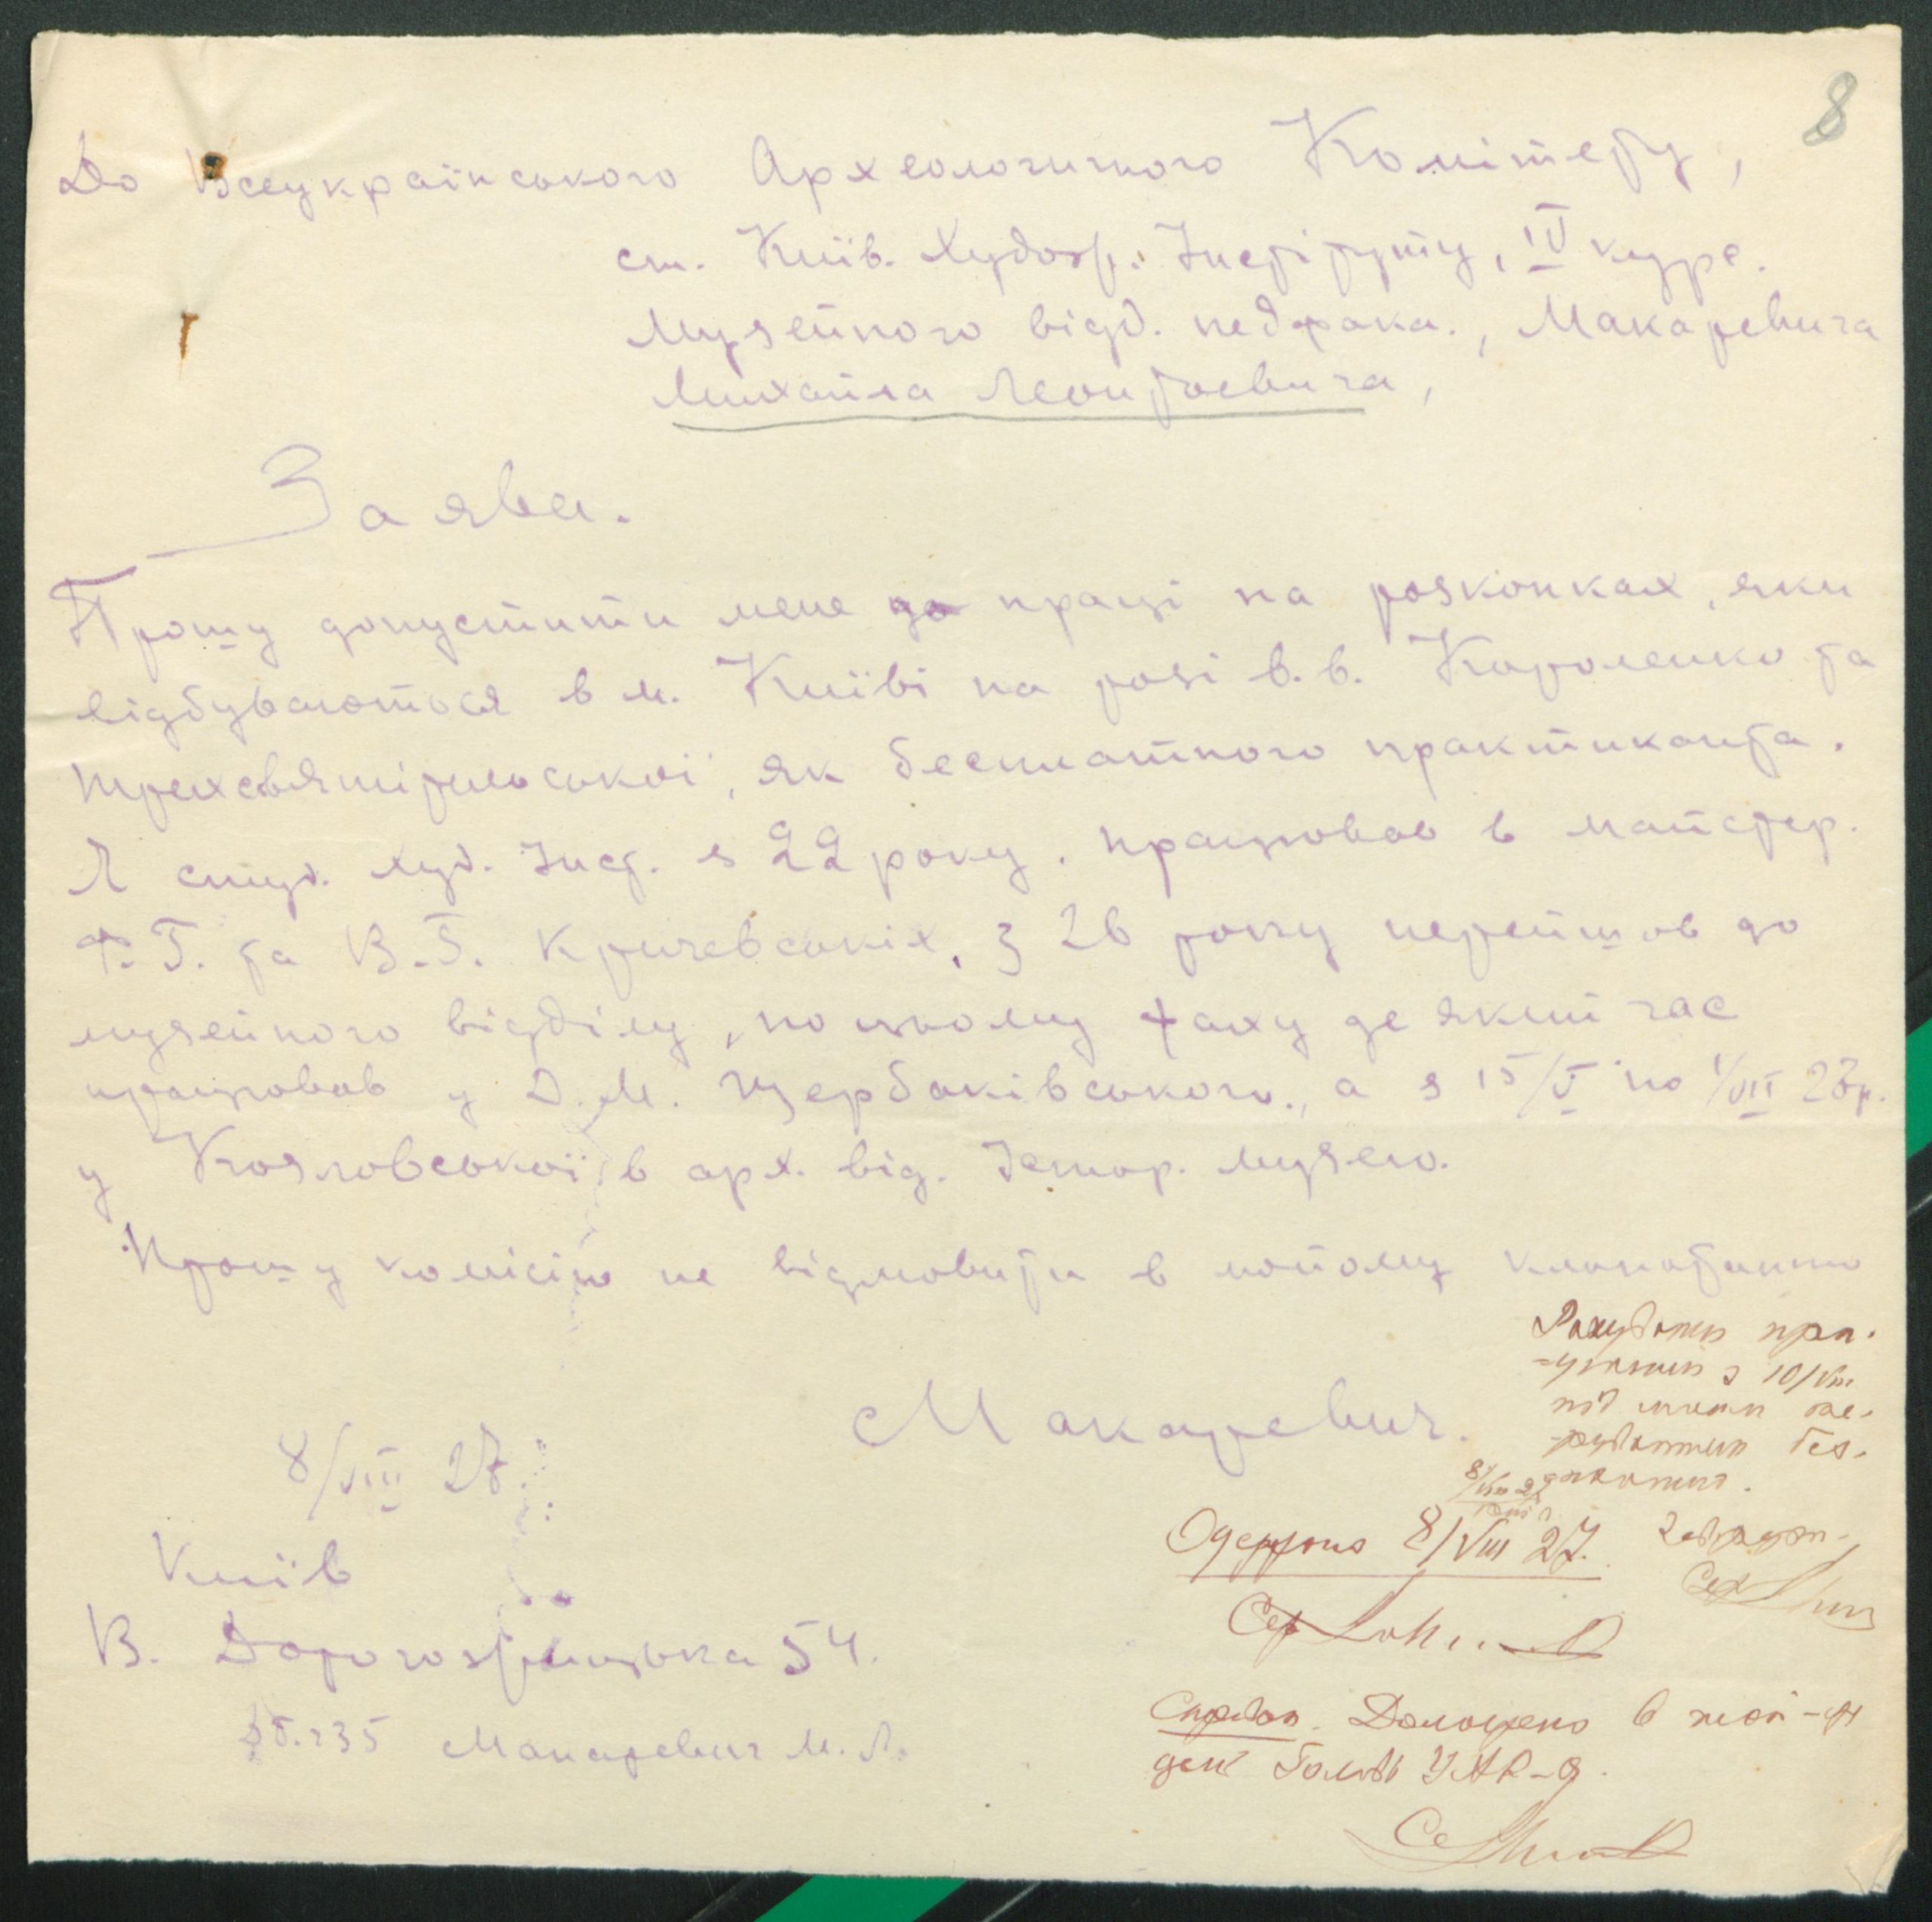 8
До Всеукраїнського Археологичного Комітету,
ст. Київ. Худож. Інстітуту, IV курс.
Музейного відд. педфака., Макаревича
Михайла Леонтьевича,
Заява.
Прошу допустити мене до праці на розкопках, яки
відбуваються в м. Київі на розі в.в. Короленко та
Трехсвятірильської, як бесплатного практиканта.
Я студ. Худ. Інст. з 22 року. Працював в майстер.
Ф.Г. та В.Г. Кричевських, з 26 року перейшов до
музейного відділу, по цьому фаху де який час
працював у Д.М. Щербаківського., а з 15/V по 1/VII 27р.
у Козловської в арх. від. Істор. музею.
Прошу комісію не відмовити в мойому клопотанню
Макаревич.
8/VIII 27.
Київ
В. Дорогожицька 54.
Макаревич М. Л.
з 10/VIII
Одержано 8/VIII 27.
Справка. Доложено в той-же
день Голові УАК-у.